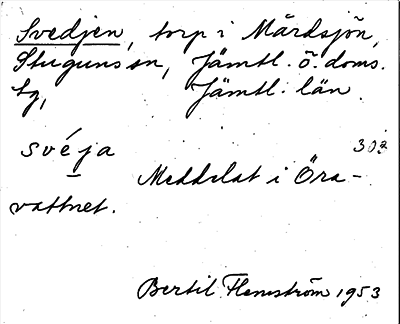 Svedjen, torp i Mårdsjön,
Stuguns sn, Jämtl. ö. doms.
tg, Jämtl. län.
302
svéja
Meddelat i Öra-
vattnet.
Bertil Flemström 1953